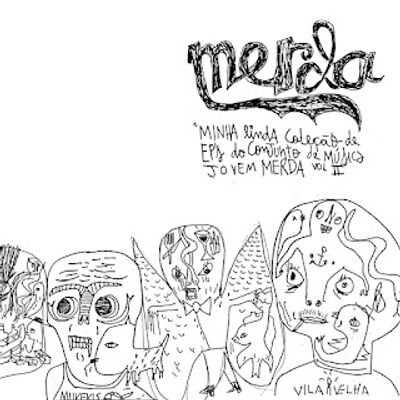 merda
"MINHA linda Coleção de
EPs do CONJUNTO de MÚSICA
JOVEM MERDA VOL II
MUKEKAS
VILAR VELHA